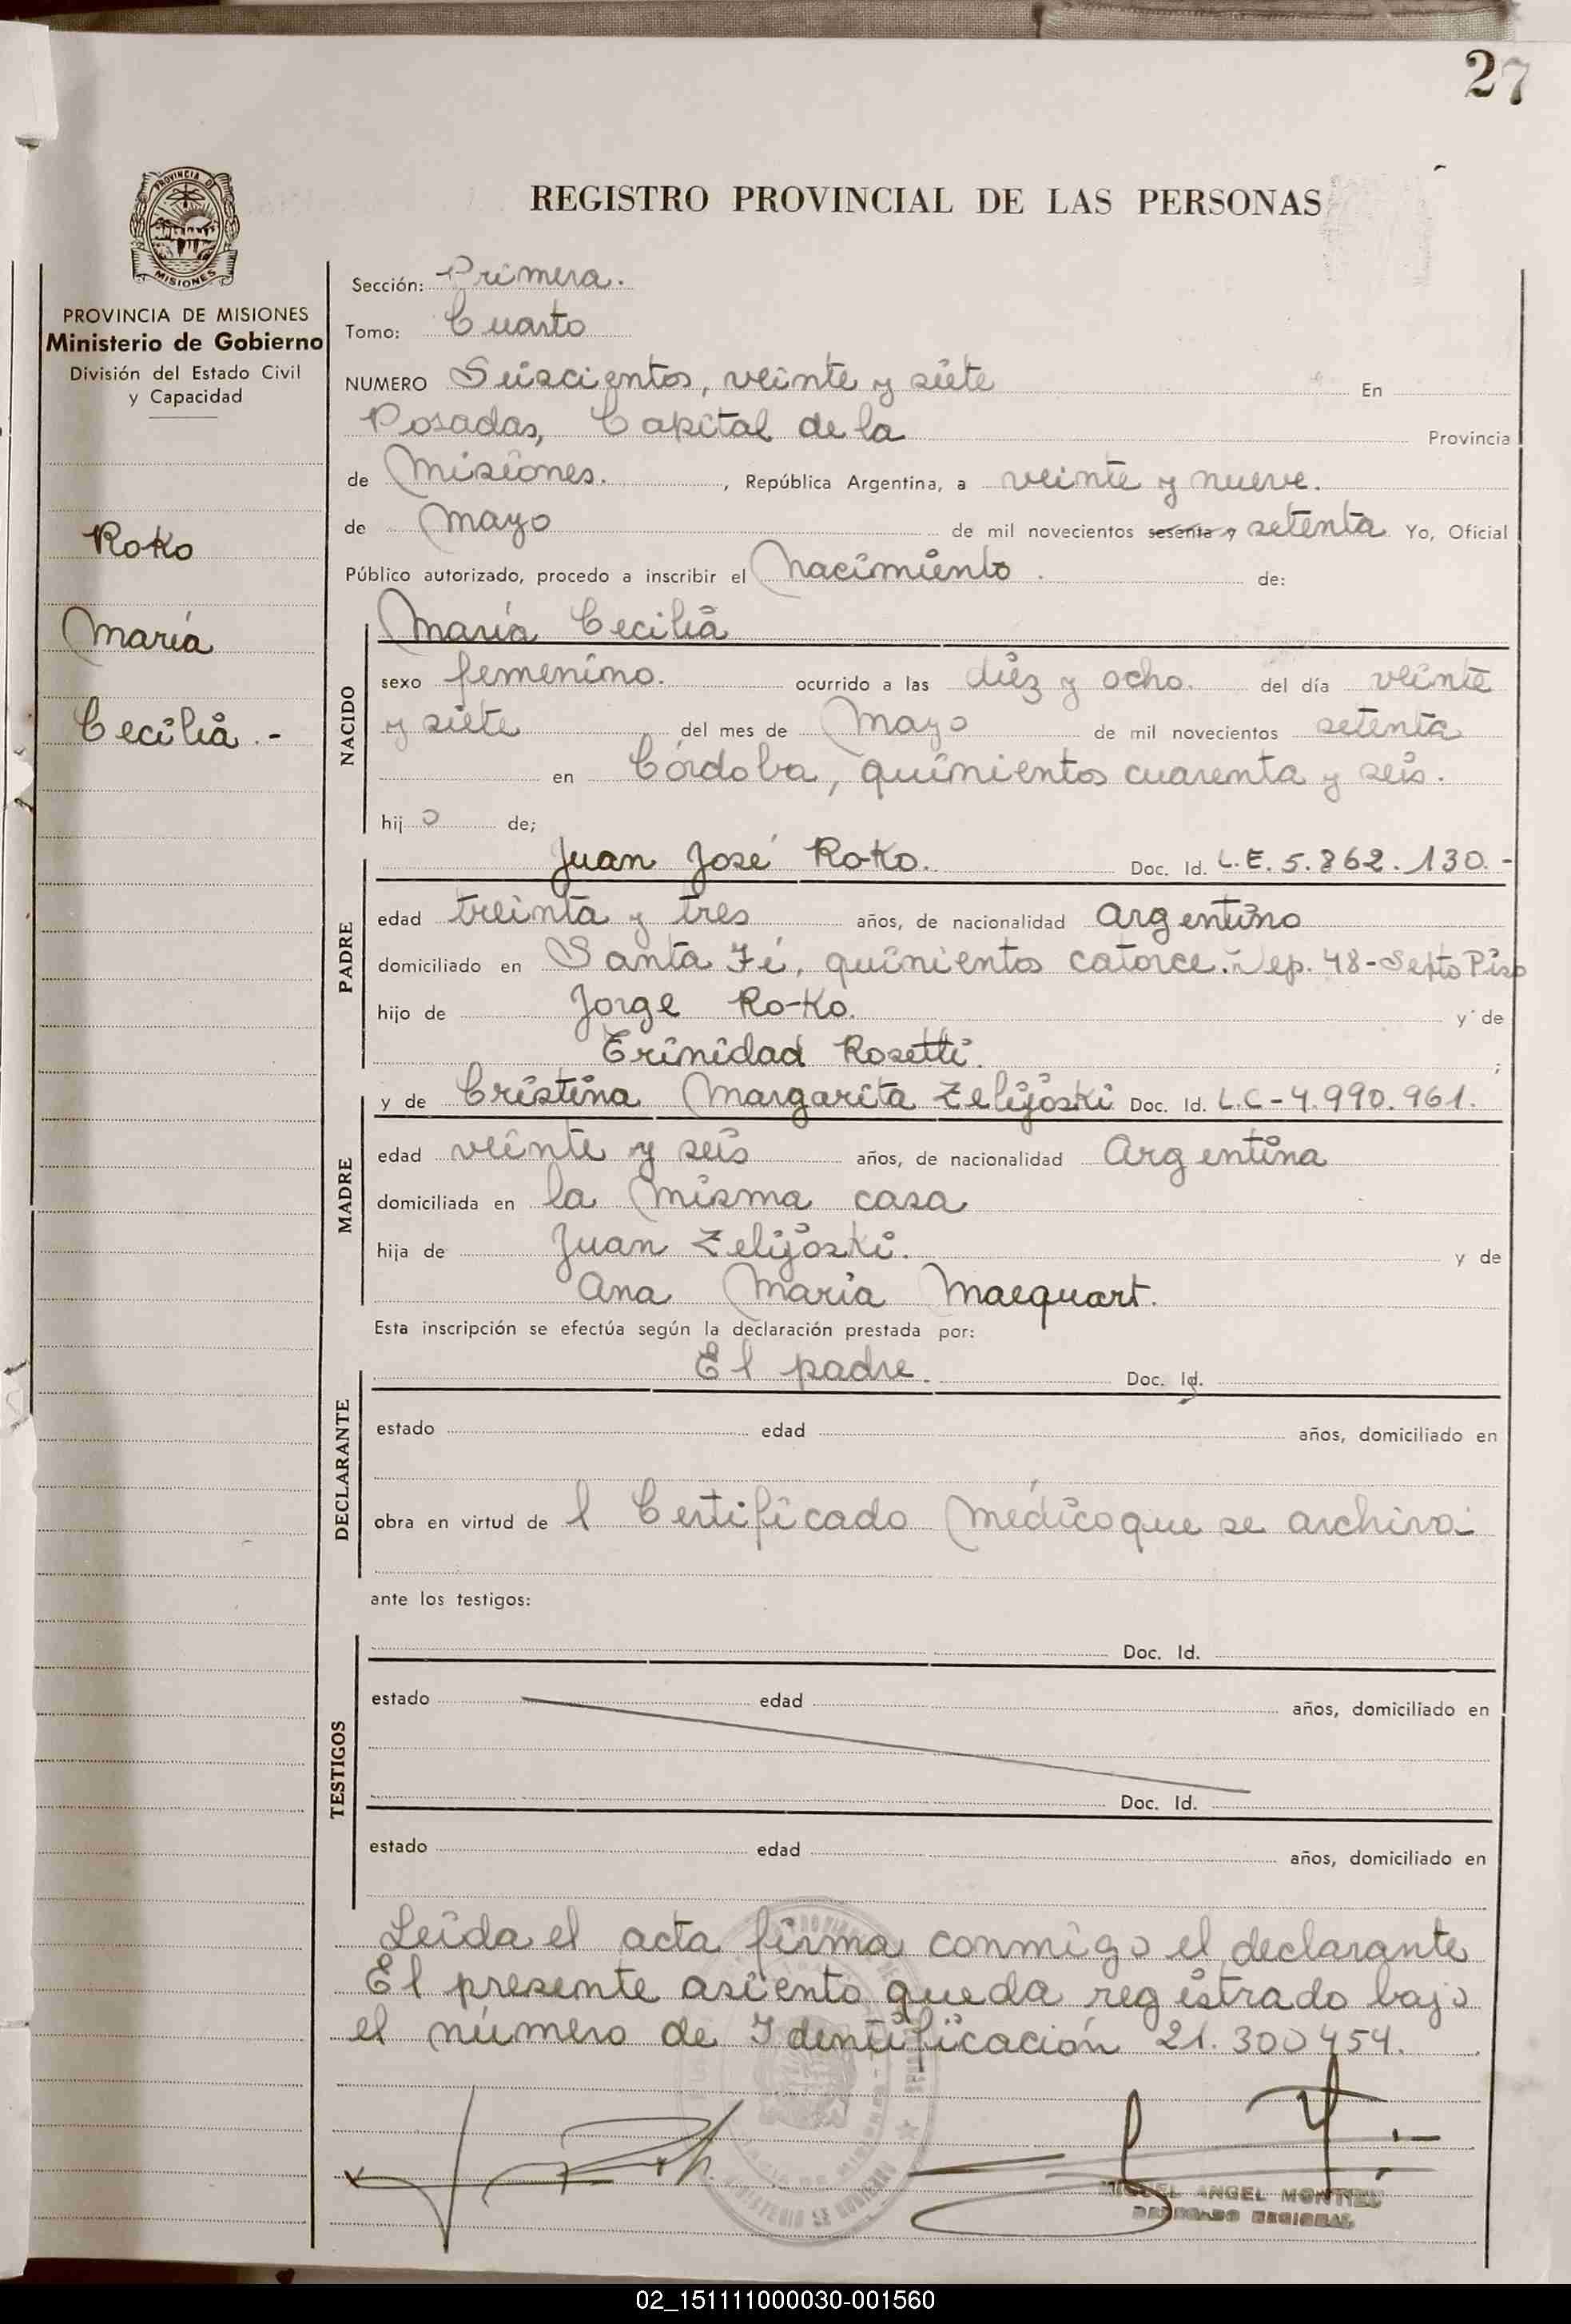 27
PROVINCIA DE
MISIONES
REGISTRO PROVINCIAL DE LAS PERSONAS
PROVINCIA DE MISIONES
Ministerio de Gobierno
División del Estado Civil
y Capacidad
Roko
María
Cecilia.-
Sección: Primera.
Tomo: Cuarto
NUMERO Seiscientos, veinte y siete En
Posadas, Capital de la Provincia
de Misiones. , República Argentina, a veinte y nueve.
de Mayo de mil novecientos sesenta y setenta Yo, Oficial
Público autorizado, procedo a inscribir el Nacimiento. de:
NACIDO
María Cecilia
sexo femenino. ocurrido a las diez y ocho. del día veinte
y siete del mes de Mayo de mil novecientos setenta
en Córdoba, quinientos cuarenta y seis.
hij o de;
PADRE
Juan José Roko. Doc. Id. L.E. 5.862.130.-
edad treinta y tres años, de nacionalidad argentino
domiciliado en Santa Fé, quinientos catorce. Dep. 48-Sexto Piso
hijo de Jorge Ro-Ko. y de
Trinidad Rosetti. ;
y de Cristina Margarita Zelijoski Doc. Id. L.C-4.990.961.
MADRE
edad veinte y seis años, de nacionalidad Argentina
domiciliada en la misma casa
hija de Juan Zelijoski. y de
Ana María Macquart.
Esta inscripción se efectúa según la declaración prestada por:
DECLARANTE
El padre. Doc. Id.
estado edad años, domiciliado en
obra en virtud de l Certificado Médico que se archiva
ante los testigos:
TESTIGOS
Doc. Id.
estado edad años, domiciliado en
Doc. Id.
estado edad años, domiciliado en
Leida el acta firma conmigo el declarante
El presente asiento queda registrado bajo
el número de Identificación 21.300454.
MIGUEL ANGEL MONTIEL
DELEGADO REGIONAL
02_151111000030-001560